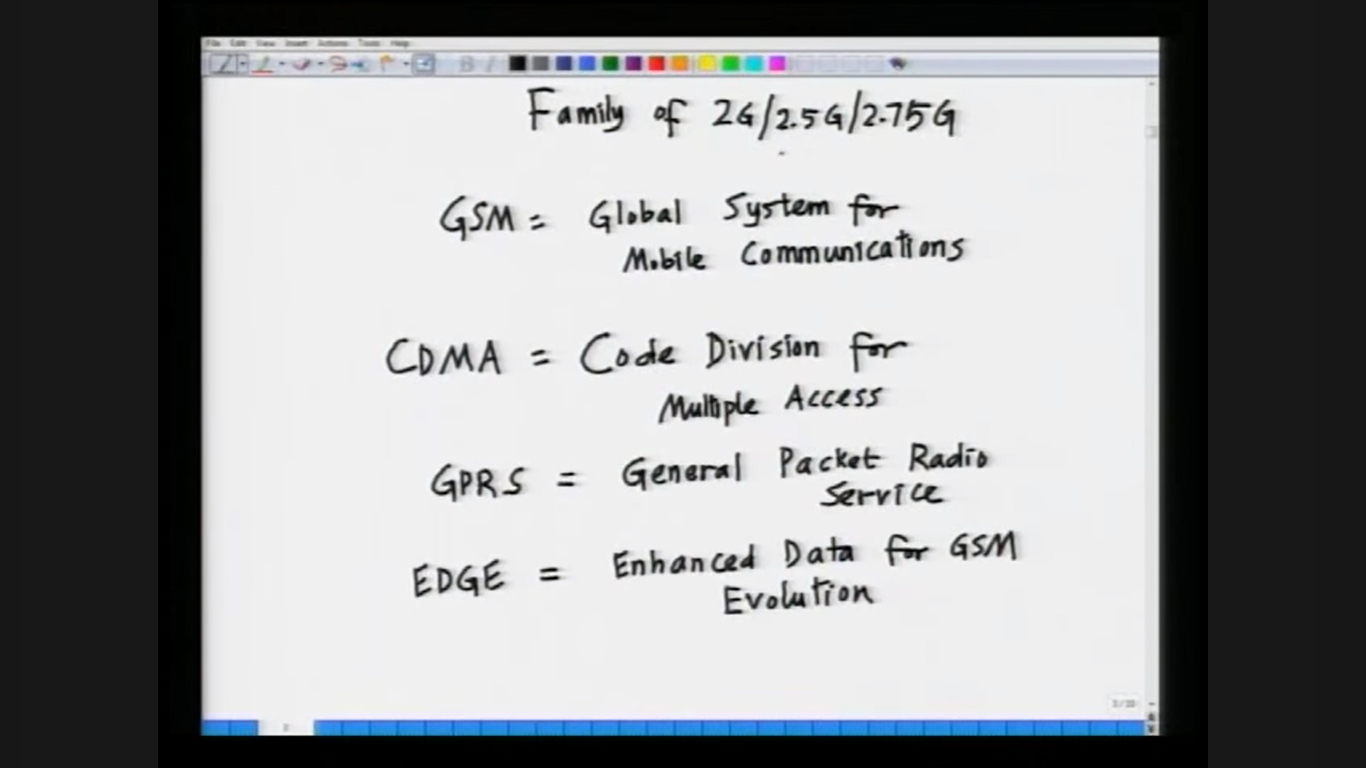 File Edit View Insert Actions Tools Help
Family of 2G/2.5G/2.75G
GSM = Global System for
Mobile Communications
CDMA = Code Division for
Multiple Access
GPRS = General Packet Radio
Service
EDGE = Enhanced Data for GSM
Evolution